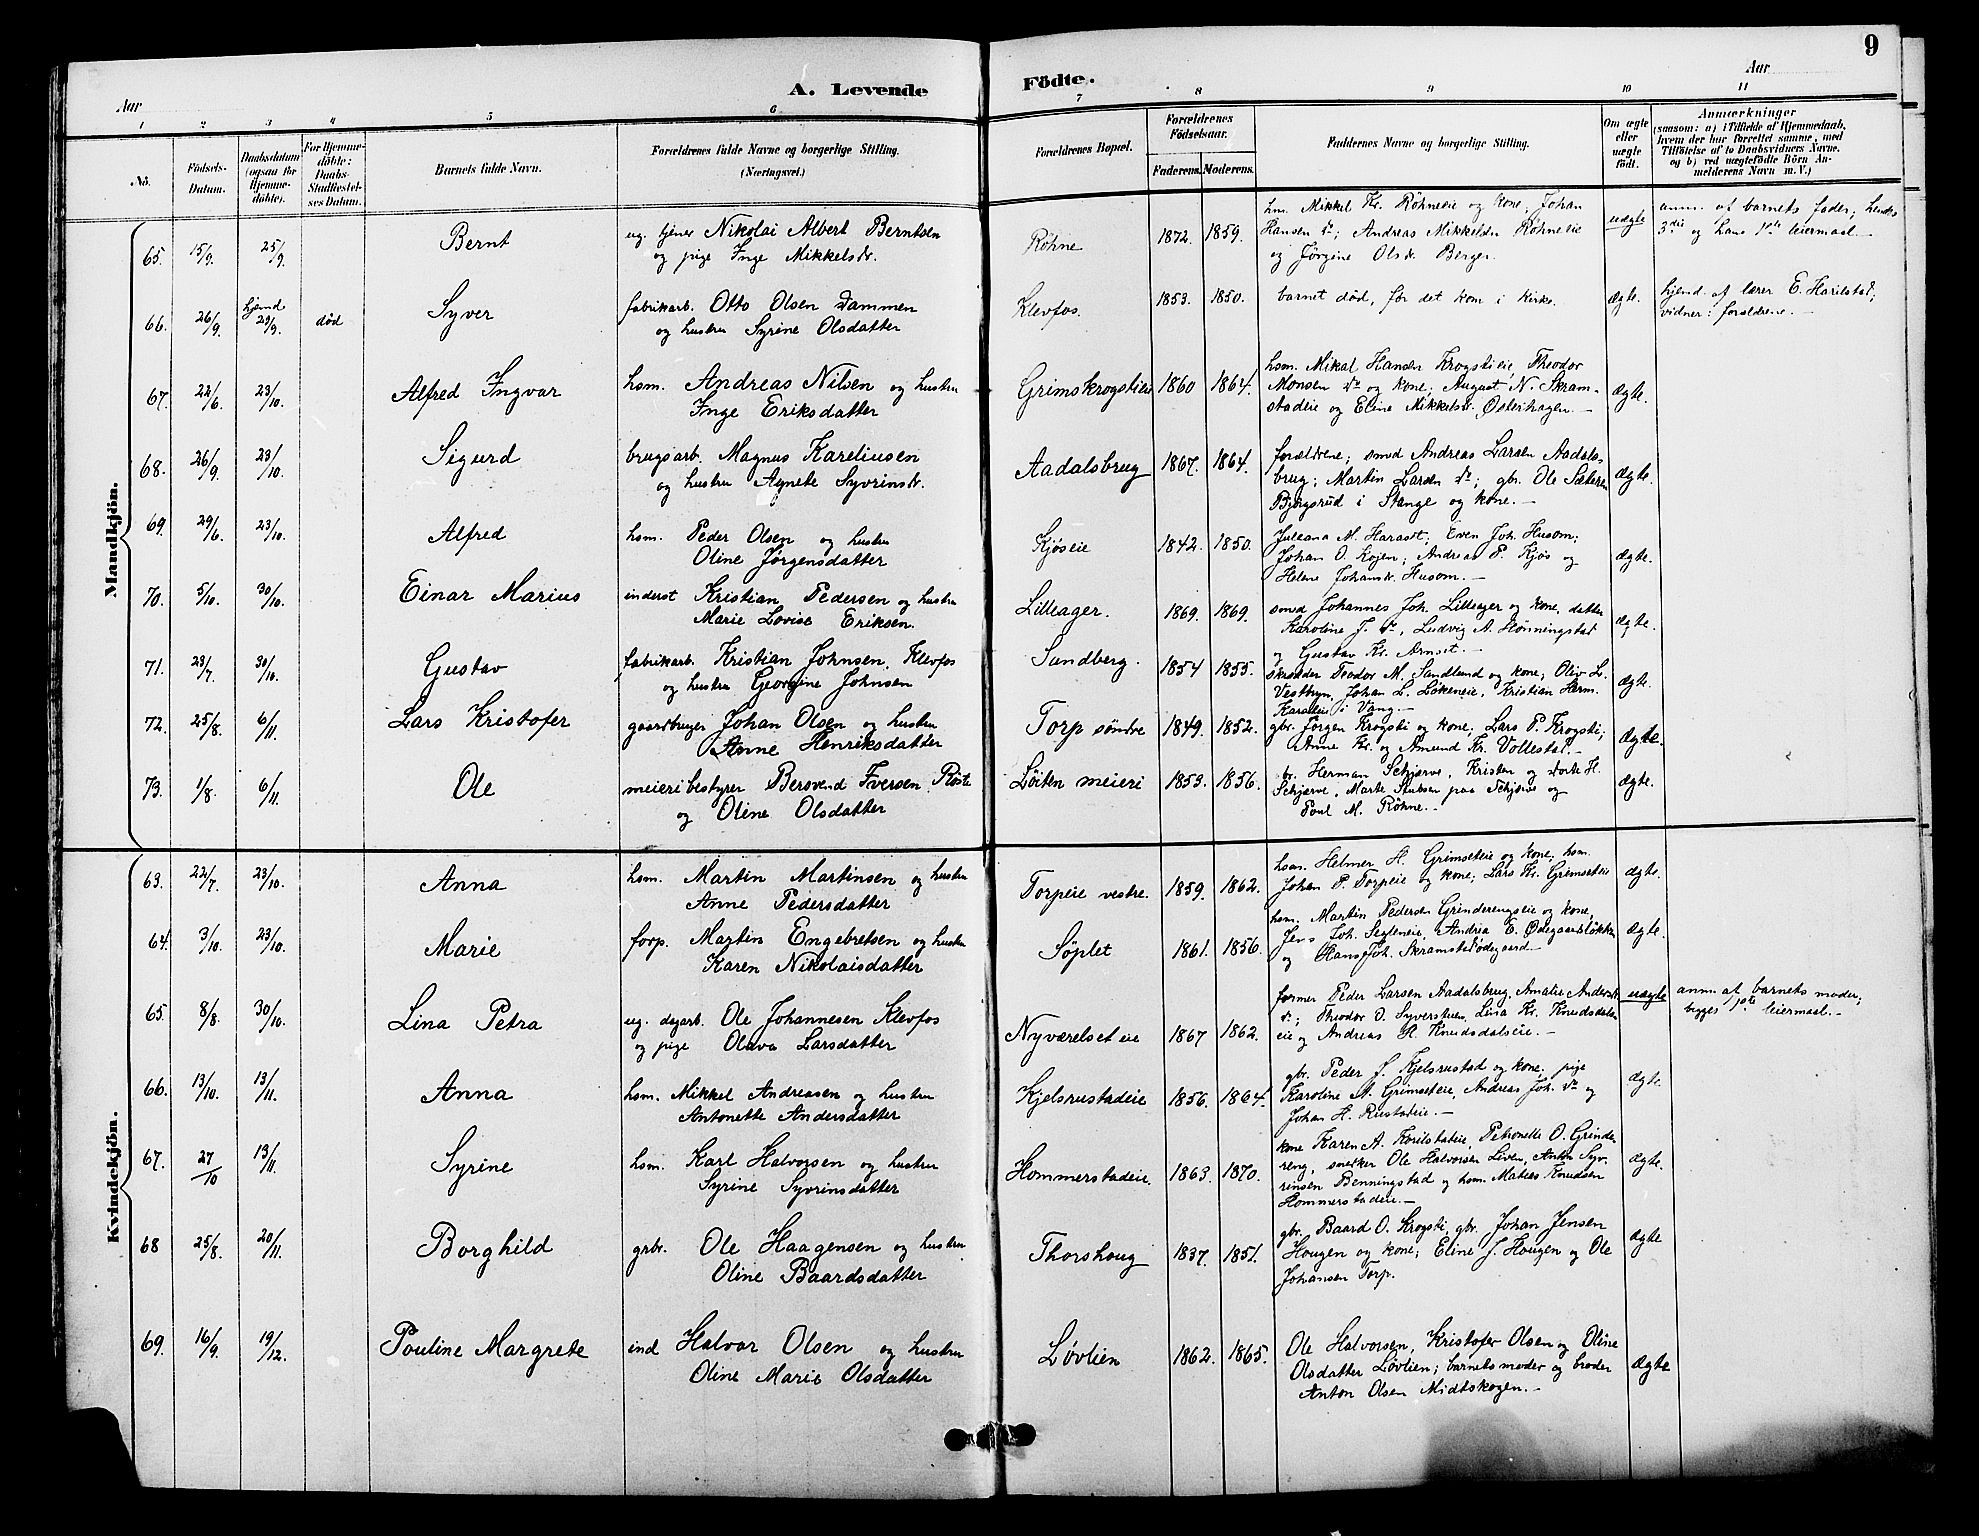 9
A. Levende Födte.
Aar
Aar
1 2 3 4 5 6 7 8 9 10 11
No.
Födsels-Datum.
Daabsdatum (ogsaa for Hjemmedöbte).
For Hjemmedöbte: Daabs-Stadfæstelses Datum.
Barnets fulde Navn.
Forældrenes fulde Navne og borgerlige Stilling.
(Næringsvei.)
Forældrenes Bopæl.
Forældrenes Födselsaar.
Faderens. Moderens.
Faddernes Navne og borgerlige Stilling.
Om ægte eller uægte födt.
Anmærkninger
(saasom: a) i Tilfælde af Hjemmedaab,
hvem der har forrettet samme, med
Tilföielse af to Daabsvidners Navne,
og b) ved uægtefödte Börn An-
melderens Navn m. V.)
Mandkjön.
65. 15/9. 25/9. Bernt
ug. tjener Nikolai Albert Berntsen
og pige Inge Mikkelsdr.
Röhne 1872. 1859.
hm. Mikkel Kr. Röhneeie og kone, Johan
Hansen do; Andreas Mikkelsen Röhneeie
og Jørgine Olsdr. Berger.
uægte
anm. af barnets fader; hendes
3die og hans 1ste leiermaal.
66. 26/9. hjemd 29/9. död Syver
fabrikarb. Otto Olsen Dammen
og hustru Syrine Olsdatter
Klevfos. 1853. 1850.
barnet död, før det kom i kirke.
Ægte.
hjemd. af lærer E. Harildstad,
vidner: forældrene.
67. 22/6. 23/10. Alfred Ingvar
hsm. Andreas Nilsen og hustru
Inge Eriksdatter
Grimskrogstieie 1860 1864.
hsm. Mikal Hansen Krogstieie, Theodor
Monsen do og kone, August N. Skram-
stadeie og Eline Mikkelsdr. Østerhagen.
Ægte.
68. 26/9. 23/10. Sigurd
brugsarb. Magnus Kareliusen
og hustru Agnete Syvrinsdr.
Aadalsbrug 1867. 1864.
forældrene; smed Andreas Larsen Aadals-
brug; Martin Larsen do; gbr. Ole Sæteren
Bjørgsrud i Stange og kone.
Ægte.
69. 29/6. 23/10. Alfred
hsm. Peder Olsen og hustru
Oline Jørgensdatter
Kjöseie 1842. 1850.
Juleana M. Haraset; Even Joh. Husom;
Johan O. Kojen; Andreas P. Kjös og
Helene Johansdr. Husom.
Ægte.
70. 5/10. 30/10. Einar Marius
inderst Kristian Pedersen og hustru
Marie Lovise Eriksen.
Lilleager. 1869. 1869.
smed Johannes Joh. Lilleager og kone, datter
Karoline J. do, Ludvig A. Hønningstad
og Gustav Kr. Arnset.
Ægte.
71. 23/7. 30/10. Gustav
fabrikarb. Kristian Johnsen, Klevfos
og hustru Georgine Johnsen
Sundberg. 1854 1855.
skrædder Teodor M. Sandlund og kone, Oliv L.
Vestbyn, Johan L. Løkeneie, Kristian Herm.
i Vang.
Ægte.
72. 25/8. 6/11. Lars Kristofer
gaardbruger Johan Olsen og hustru
Anne Henriksdatter
Torp söndre 1849. 1852.
gbr. Jørgen Krogsti og kone; Lars P. Krogsti;
Anne Kr. og Amund Kr. Vollestad.
Ægte.
73. 1/8. 6/11. Ole
meieribestyrer Bersvend Iversen Røste
og Oline Olsdatter
Løiten meieri 1853. 1856.
br. Herman Schjerve, Kristen og Dorte H.
Schjerve, Marte Stubsen paa Schjerve og
Poul M. Röhne.
Ægte.
Kvindekjön.
63. 22/7. 23/10. Anna
hsm. Martin Martinsen og hustru
Anne Pedersdatter
Torpeie vestre. 1859. 1862.
hsm. Helmer H. Grimseteie og kone, hsm.
Johan P. Torpeie og kone; Lars Kr. Grimseteie
Ægte.
64. 3/10. 23/10. Marie
forp. Martin Engebretsen og hustru
Karen Nikolaisdatter
Söplet 1861. 1856.
hsm. Martin Pedersen Grinderengseie og kone,
Jens Joh. Segleneie, Andrea E. Ødegaardsløkken
og Hans Joh. Skramstadødegaard.
Ægte.
65. 8/8. 30/10. Lina Petra
ug. dagarb. Ole Johannesen Klevfos
og pige Olava Larsdatter
Nyværelset eie 1867 1862.
former Peder Larsen Aadalsbrug, Amalie Andersdr
do; Theodor O. Syverstuen, Lina Kr. Knudsdalen
eie og Andreas A. Knudsdalseie.
uægte
anm. af barnets moder,
begges 1ste leiermaal.
66. 13/10. 13/11. Anna
hsm. Mikkel Andreasen og hustru
Antonette Andersdatter
Kjelsrustadeie 1856. 1864.
gbr. Peder J. Kjelsrustad og kone; pige
Karoline A. Grimseteie, Andreas Joh. do og
Johan H. Rustadeie.
Ægte.
67. 27/10 13/11. Syrine
hsm. Karl Halvorsen og hustru
Syrine Syvrinsdatter
Hommerstadeie. 1863. 1870.
kone Karen A. Korilstadeie, Petronelle O. Grinde-
reng, snekker Ole Halvorsen Liven, Anton Syv-
rinsen Benningstad og hsm. Mateas Knudsen
Hommerstadeie.
Ægte.
68 25/8. 20/11. Borghild
grbr. Ole Haagensen og hustru
Oline Baardsdatter
Thorshoug 1837. 1851.
gbr. Baard O. Krogsti, gbr. Johan Jensen
Hougen og kone; Eline J. Hougen og Ole
Johansen Torp.
Ægte
69. 16/9. 19/12. Pouline Margrete
ind Halvor Olsen og hustru
Oline Marie Olsdatter
Løvlien 1862. 1865.
Ole Halvorsen, Kristofer Olsen og Oline
Olsdatter Løvlien; barnets moder og broder
Anton Olsen Midtskogen.
Ægte